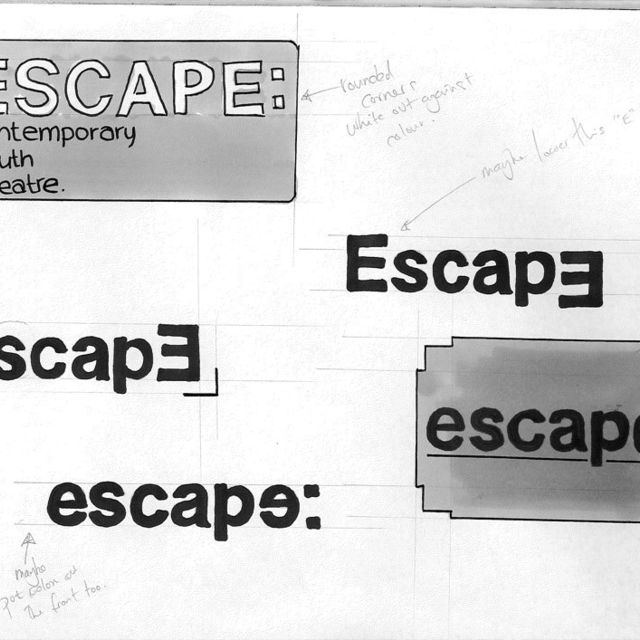 ESCAPE:
ntemporary
uth
eatre.
rounded
corners
white out against
colour.
maybe lower this "E"
EscapE
scapE
escape
escape:
maybe
put colon at
the front too.